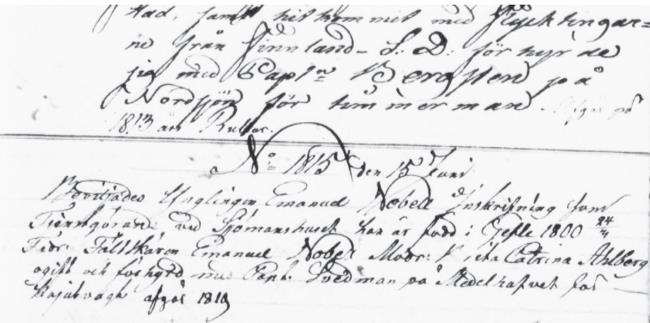 stad, samt hitkommit med flycktingar=
ne från Finnland – S. D. förhyrde
sig med Captn Bergsten på
Nordsjön för timmerman. Afgår på
1813 års Rullor.
No 1815 den 15 Juni
Beviljades Ynglingen Emanuel Nobell Inskrifning som
Tjenstgörande vid Sjömanshuset han är född i Gefle 1800 24/3
Fadr. Fältskären Emanuel Nobel Modr: Catrina Ahlberg
ogift och förhyrd med Capt. Svedman på Medelhafvet för
Kajutvagt afgår 1819